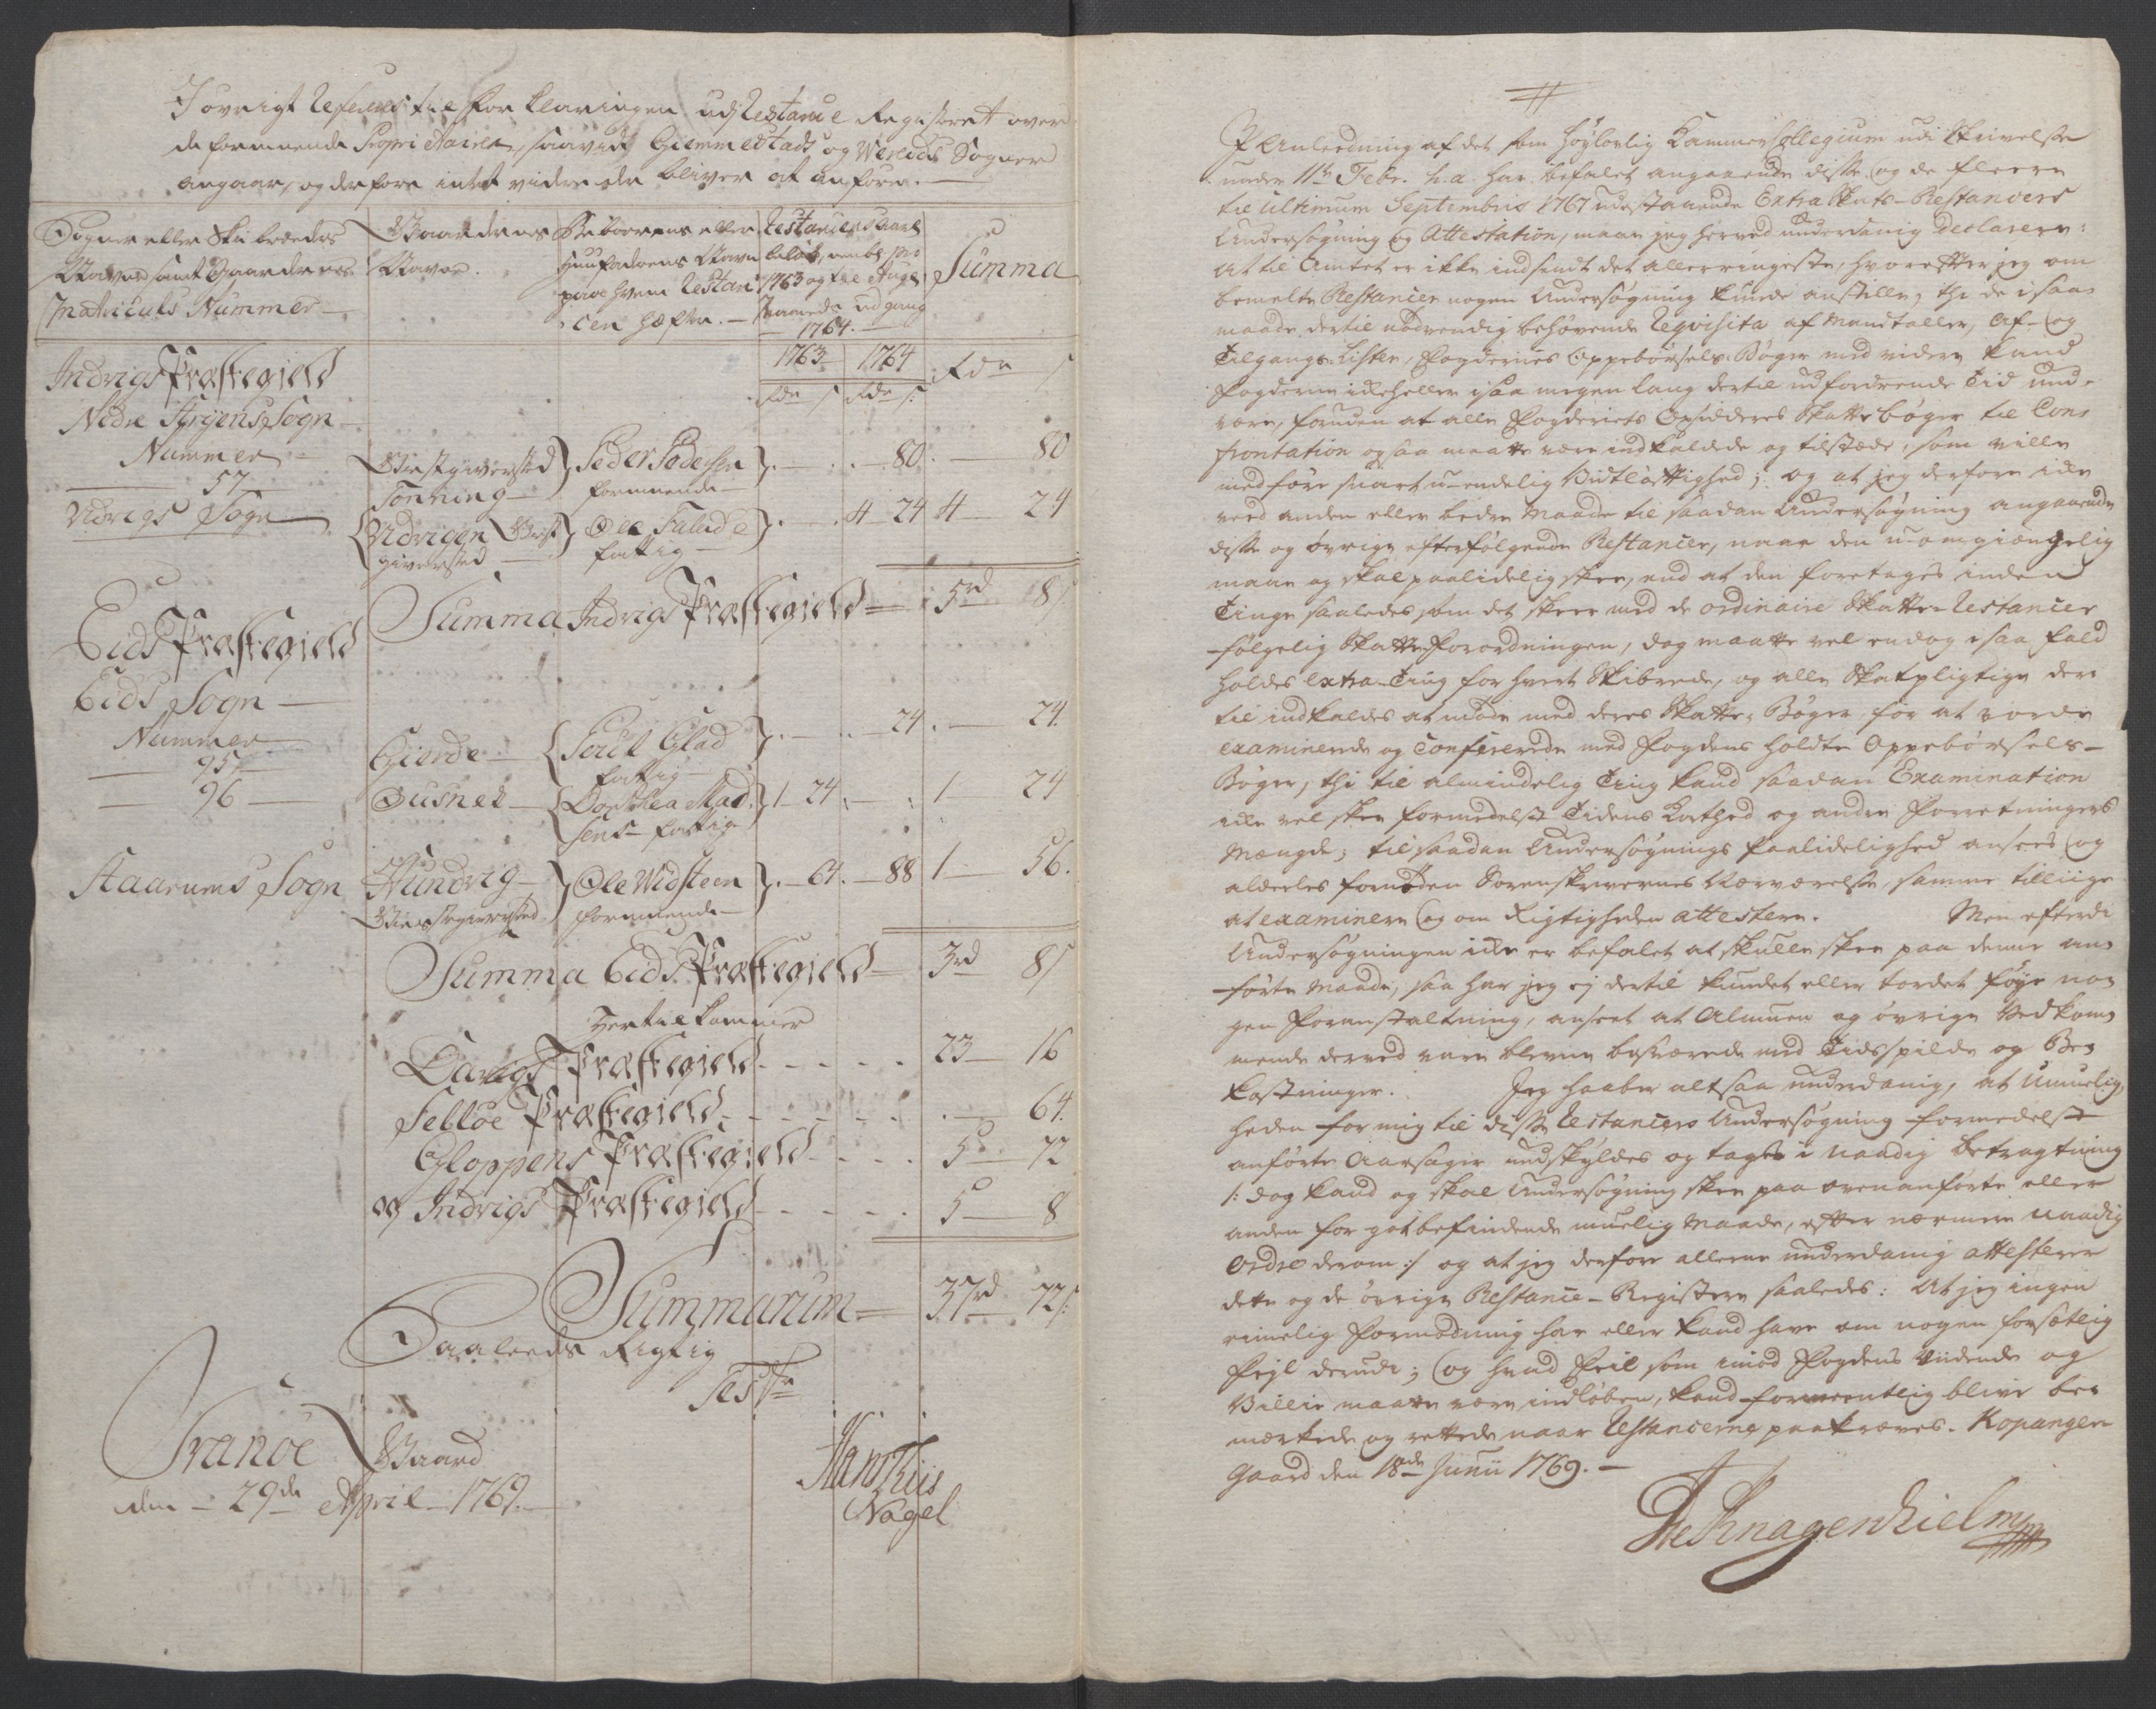 I øvrigt Refereres til Forklaringen udj Restance Registeret over
de formuende Proprietairer, saavidt Giemmestads og Vereids Sogner
angaar, og derfore intet videre der bliver at anføre.
Sogner eller Skibredets
Navne samt Gaardenes
Matriculs Nummer
Gaardenes
Navne.
Beboerens eller
Huusfaderens Navn
paa hvem Restan-
cen hæfter.
Restancens aarl
beløb, nembl. pro
1763 og til Augl
Maaneds udgang
1764.
Summa
1763 1764
Rdr s Rdr s Rdr s
Indvigs Præstegield
Nedre Stryens Sogn
Nummer
57
Giestgiverstæd
Tonning
Peder Pedersen
formuende
80 80
Udvigs Sogn
Udvigen Giest
giverstæd
Ole Falude
fattig
4 24 4 24
Summa Indvigs Præstegield 5rd 8s
Eids Præstegield
Eids Sogn
Nummer
95
Gierde
Peder Glad
fattig
24 24.
96
Dusnek
Dorthea Mad-
sens fattig
1 24 1 24
Staarums Sogn
Hundvig
Giestgiverstæd
Ole Widsteen
formuende
64 88 1 56.
Summa Eids Præstegield 3rd 8s
Hertil kommer
Davigs Præstegield 23 16
Selloe Præstegield 64.
Gloppens Præstegield 5 72
og Indvigs Præstegield 5 8
Summarum 37rd 72s.
Saaleedes Rigtig
Test:
Svanøe Gaard
den 29de April 1769.
Hans Thiis
Nagel
I Anleedning af det som Høylovlig Kammer Collegium udi Skrivelse
under 11te Febr. h.a. har befalet angaaende disse og de fleere
til ultimum Septembris 1767 udestaaende Extra Skats-Restancers
Undersøgning og Attestation, maae jeg herved underdanig declarere:
At til Amtet er ikke indsendt det allerringeste, hvorefter jeg om
bemelte Restancer nogen Undersøgning kunde anstille, thi de i saa
maade dertil nødvendig behøvende Reqvisita af Mandtaller, Af- og
Tilgangs-Lister, Fogdernes Oppebørsels-Bøger med videre kand
Fogderne ikke heller i saa megen lang dertil udfordrende Tid und-
være, foruden at alle Fogderiets Opsidderes Skattebøger til Con-
frontation ogsaa maatte være indkaldede og tilstæde, som ville
medføre snart u-endelig Vidtløftighed; og at jeg derfore ikke
veed anden eller bedre Maade til saadan Undersøgning angaaende
disse og øvrige efterfølgende Restancer, naar den u-omgiængelig
maae og skal paalidelig skee, end at den foretages inden
Tinge saaledes som det skeer med de ordinaire Skatte-Restancer
følgelig Skatte-Forordningen, dog maatte vel endog i saa fald
holdes extra-Ting for hvert Skibrede, og alle Skatpligtige der-
til indkaldes at møde med deres Skatte-Bøger for at vorde
examinerede og confererede med Fogdens holdte Oppebørsels-
Bøger, thi til almindelig Ting kand saadan Examination
ikke vel skee formedelst Tidens Korthed og andre Forretningers
Mængde; til saadan Undersøgnings Paalidelighed ansees og
aldeeles fornøden Sorenskrivernes Nærværelse, samme tillige
at examinere og om Rigtigheden attestere. Men efterdi
Undersøgningen ikke er befalet at skulle skee paa denne an-
førte Maade, saa har jeg ej dertil kundet eller tordet føye no-
gen Foranstaltning, anseet at Almuen og øvrige Vedkom-
mende derved vare blevne besværede med Tidsspilde og Be-
kostninger. Jeg haaber altsaa underdanig, at Umuelig-
heden for mig til disse Restancers Undersøgning formedelst
anførte Aarsager undskyldes og tages i naadig betragtning
/: dog kand og skal Undersøgning skee paa ovenanførte eller
anden for got befindende muelig Maade, efter nærmere naadig
Ordre derom :/ og at jeg derfore allene underdanig attesterer
dette og de øvrige Restance-Registere saaledes: At jeg ingen
rimelig Formodning har eller kand have om nogen forsætlig
Fejl derudi; og hvad Feil som imod Fogdens Vidende og
Villie maatte være indløben, kand formeentlig blive be-
mærkede og rettede naar Restancerne paakræves. Kopanger
Gaard den 18de Junii 1769.
De Knagenhielm